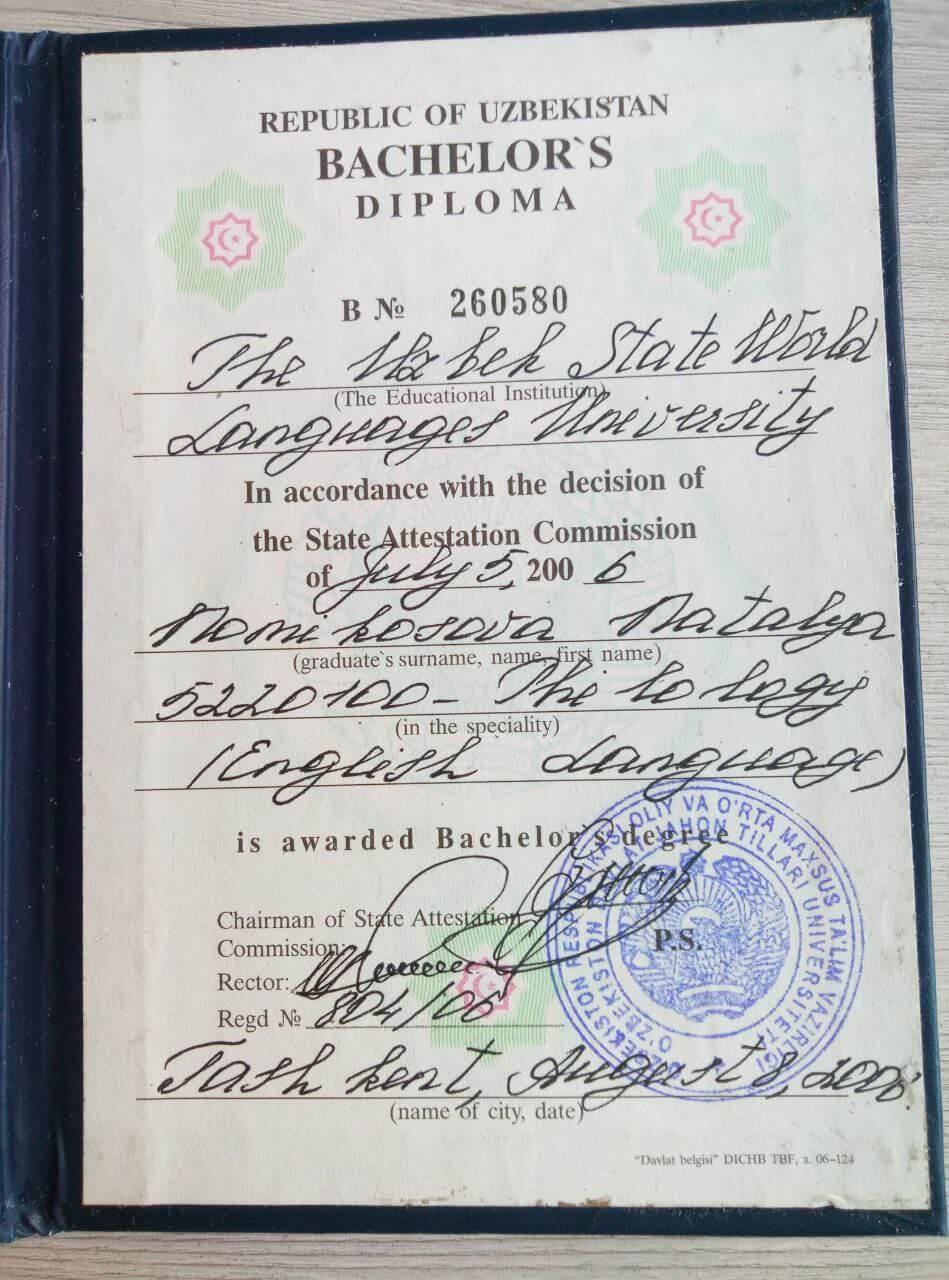 REPUBLIC OF UZBEKISTAN
BACHELOR`S
DIPLOMA
B № 260580
The Uzbek State World
(The Educational Institution)
Languages University
In accordance with the decision of
the State Attestation Commission
of July 5, 200 6
Nomikosova Natalya
(graduate`s surname, name, first name)
5220100 – Philology
(in the speciality)
(English Language)
is awarded Bachelor`s degree
Chairman of State Attestation
Commission:
P.S.
Rector:
Regd № 804/06
Tashkent, August 8, 2006
(name of city, date)
O'ZBEKISTON RESPUBLIKASI OLIY VA O'RTA MAXSUS TA'LIM VAZIRLIGI
O'ZBEKISTON DAVLAT JAHON TILLARI UNIVERSITETI
"Davlat belgisi" DICHB TBF, з. 06–124